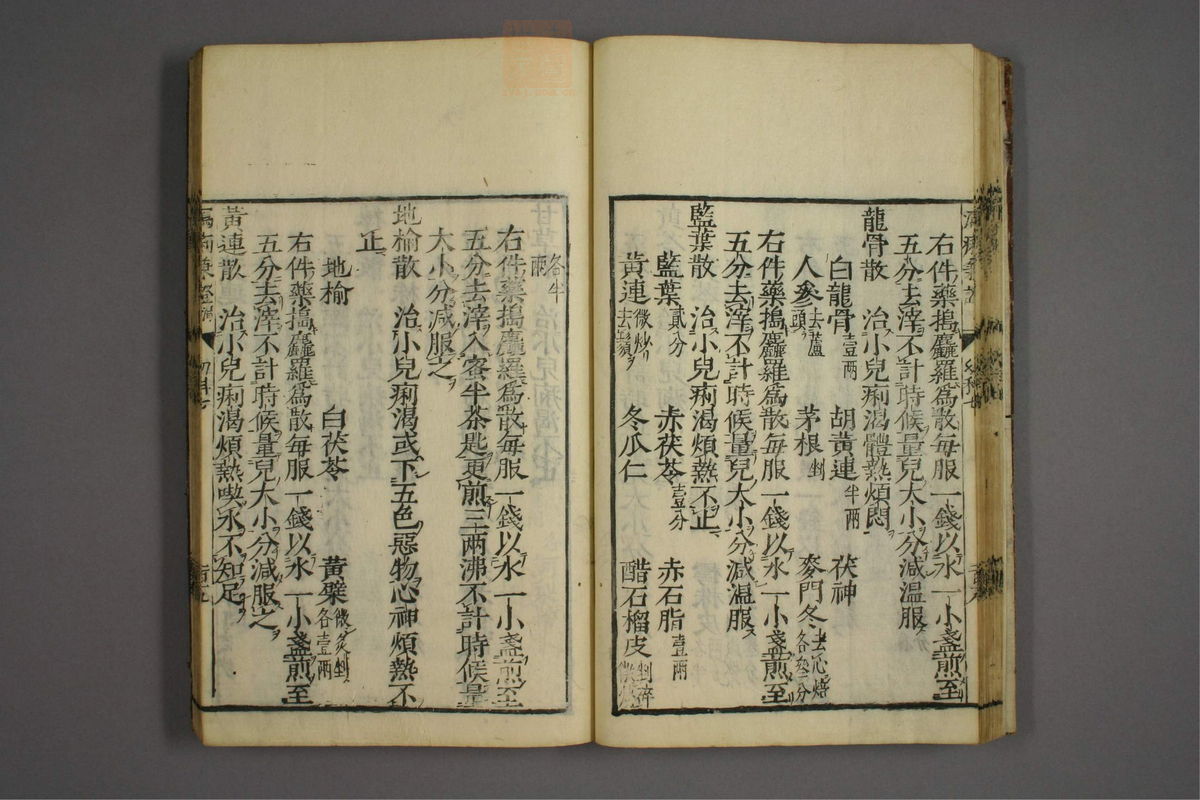 右件藥搗麤羅爲散每服一錢以水一小盞煎至
五分去滓不計時候量兒大小分減温服
龍骨散 治小兒痢渴體熱煩悶
白龍骨壹兩 胡黃連半兩 茯神
人參去蘆頭 茅根剉 麥門冬去心焙各叁分
右件藥搗麤羅爲散每服一錢以水一小盞煎至
五分去滓不計時候量兒大小分減温服
藍葉散 治小兒痢渴煩熱不止
藍葉貳分 赤茯苓壹分 赤石脂壹兩
黃連微炒去鬚 冬瓜仁 醋石榴皮剉碎微炒
甘草各半兩
右件藥搗麤羅爲散每服一錢以水一小盞煎至
五分去滓入蜜半茶匙更煎三兩沸不計時候量
大小分減服之
地榆散 治小兒痢渴或下五色惡物心神煩熱不
止
地榆 白茯苓 黃蘗微炙剉各壹兩
右件藥搗麤羅爲散每服一錢以水一小盞煎至
五分去滓不計時候量兒大小分減服之
黃連散 治小兒痢渴煩熱喫水不知足